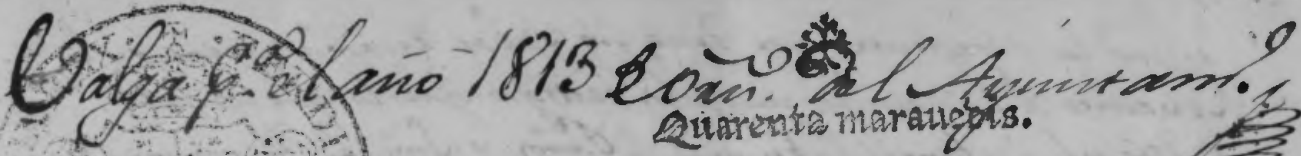 Valga p.ª el año 1813 del Ayuntam.º
Quarenta marauedis.